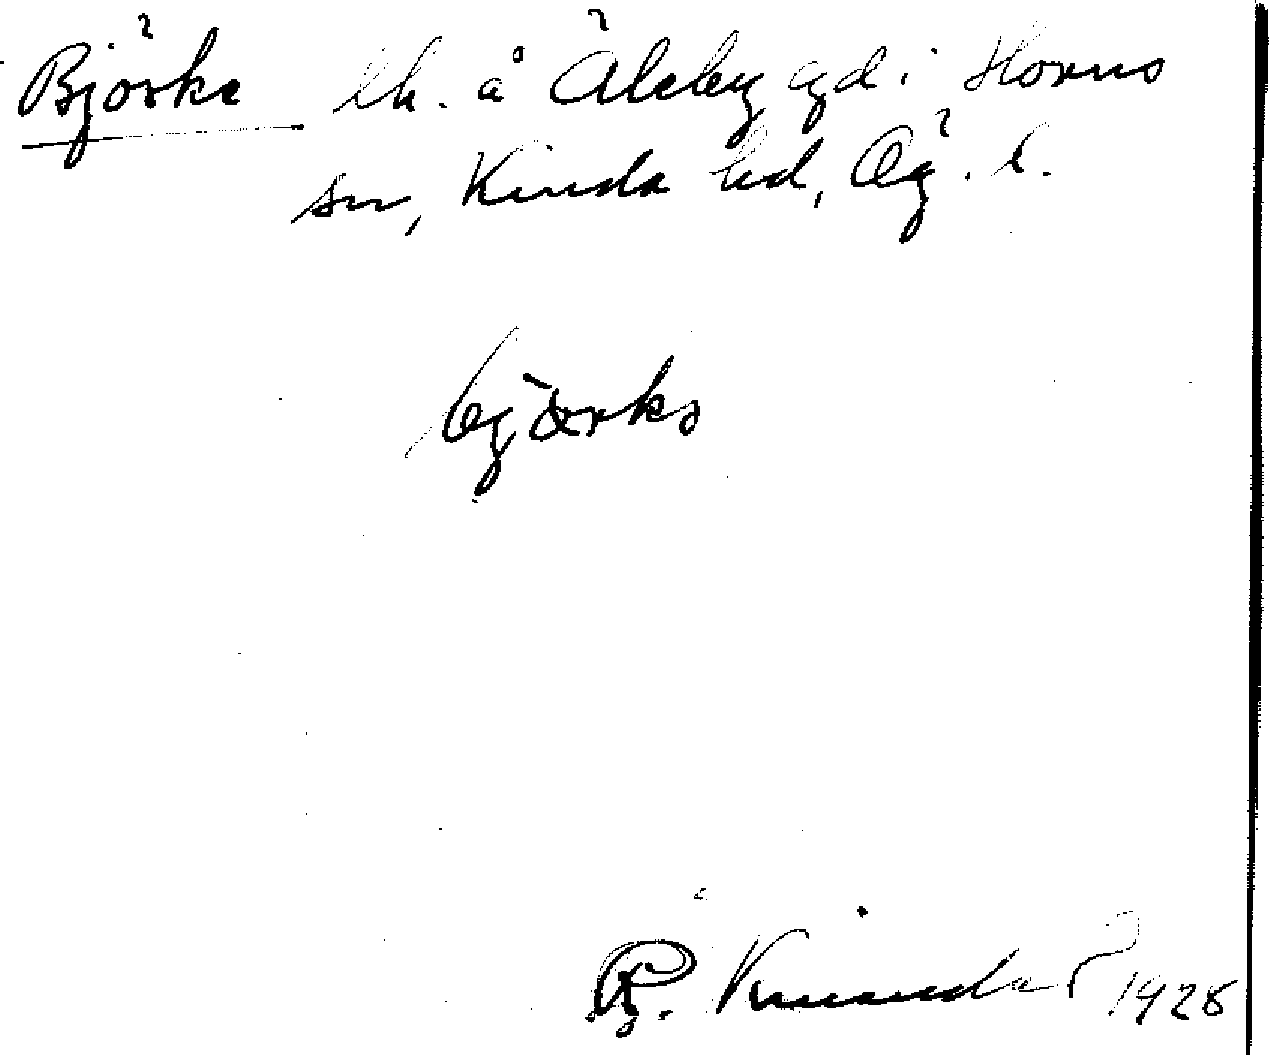 Björke lh. å Äleby gd i Horns
sn, Kinda hd, Ög. l.
bjö̀rkə
R. 1928